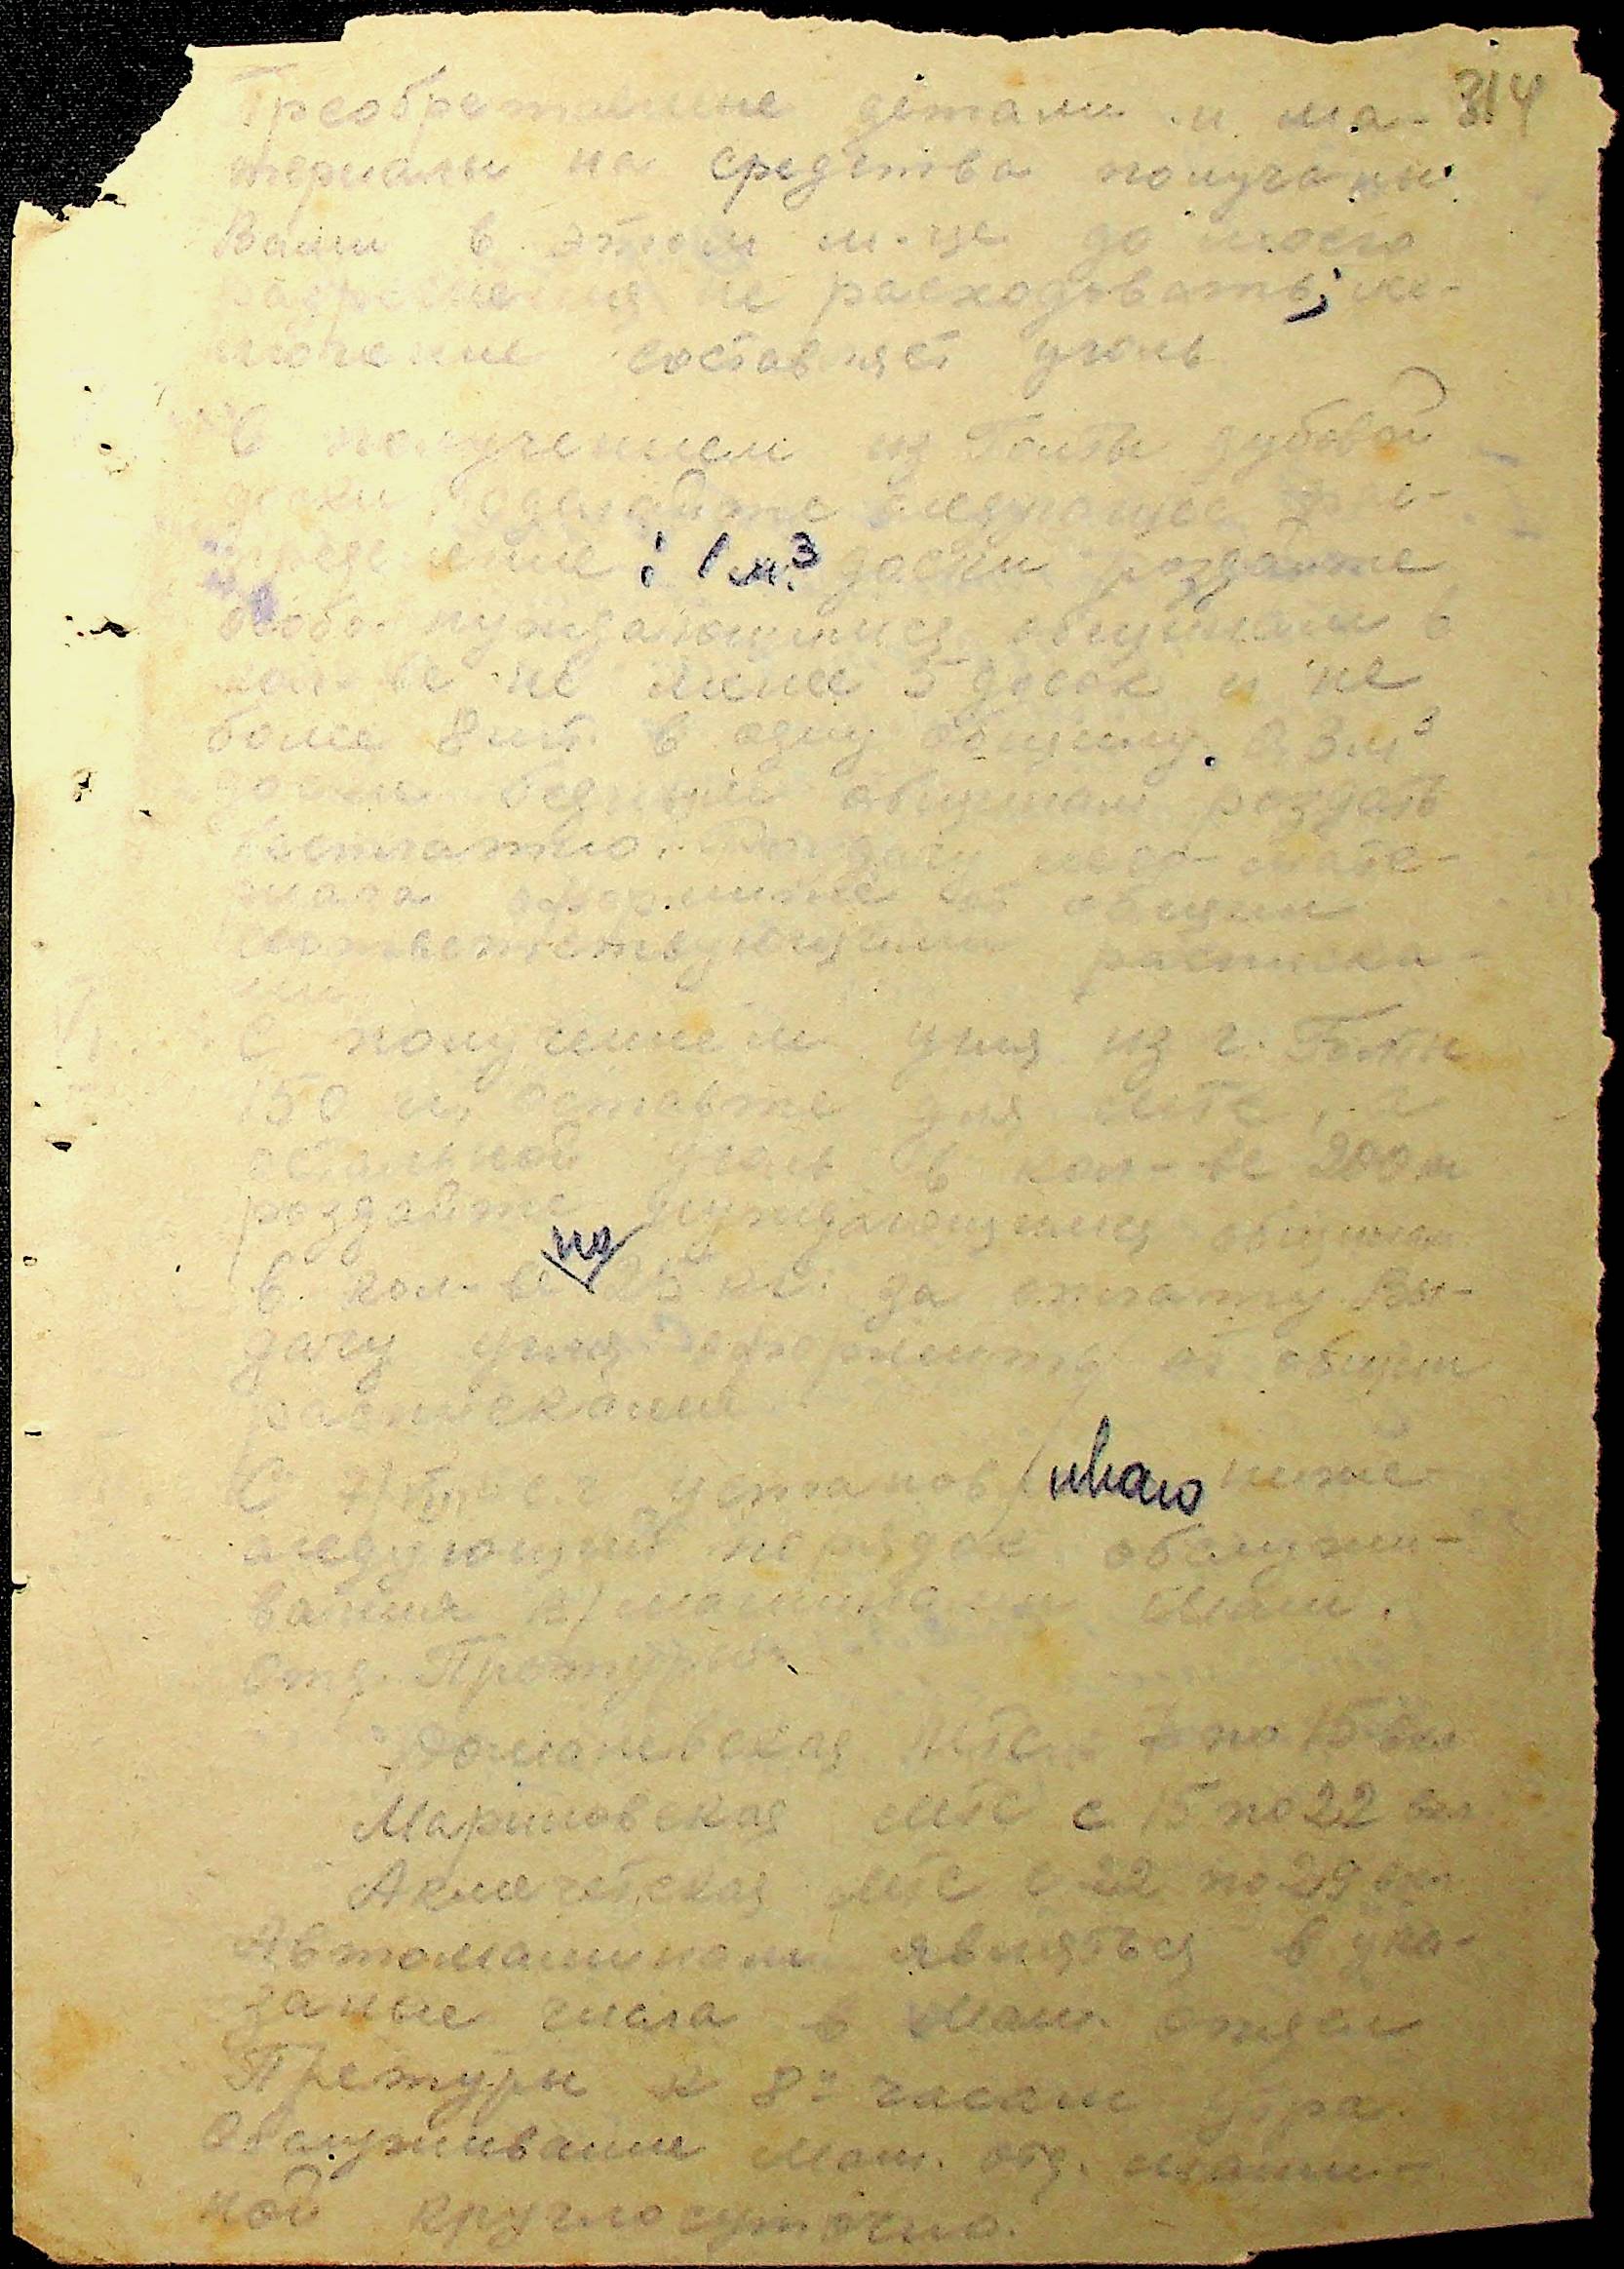 314
Преобретенные детали и ма-
териалы на средства получены
Вами в этом м-це до моего
разрешения не расходовать; ис-
ключение составляет уголь
С получением из Голты дубовой
доски сделайте следующее рас-
пределение: 1 м.³ доски раздайте
особо нуждающимися общинам в
кол-ве не менее 5 досок и не
более 8 шт. в одну общину. А 3 м³
доски бедным общинам раздать
бесплатно. Выдачу лесо-мате-
риала оформите от общин
соответствующими расписка-
ми.
VI. С получением угля из г. Голты
150 оставьте для МТС, а
остальной уголь в кол-ве 200
раздайте нуждающимися общинам
в кол-ве по 25 кг. за оплату Вы-
дачу угля оформить от общин
расписками.
С 7/ с.г. устанавливаю ниже-
следующий порядок обслужи-
вания а/машинами Маш.
отд. Претуры
Доманевская МТС с 7 по 15 вкл
Мариновская МТС с 15 по 22 вкл
Акмечетская МТС с 22 по 29 вкл
Автомашинам являться в ука-
заные числа в Маш. отдел
Претуры к 8-и часам утра.
Обслуживание Маш. отд. маши-
ной круглосуточно.